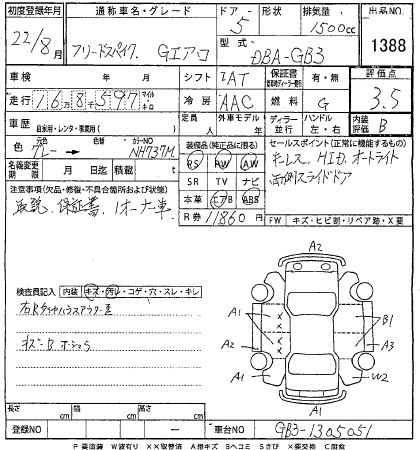 初度登録年月 通称車名・グレード ドアー 形状 排気量 出品NO
22/8月 フリードスパイク. Gエアロ 5 1500cc 1388
型式 DBA-GB3
車検 年 月 シフト IAT 保証書 有・無 評価点
走行 16万8千597 マイル キロ 冷房 AAC 燃料 G 3.5
車歴 自家用・レンタ・事業用( ) 定員 人 外車モデル 年 ディーラー 並行 ハンドル 左・右 内装評価 B
色 グレー → カラーNO NH737M 装備品(純正品に限る) セールスポイント(正常に機能するもの)
PS PW AW キーレス HID. オートライト
名義変更期限 月 日迄 SR TV ナビ 両側スライドドア
注意事項(欠品・修復・不具合箇所および状態) 本革 エアB ABS
取説. 保証書. 1オーナー車. R券 11860円 FW キズ・ヒビ割・リペア跡・X要
検査員記入 内装 キズ・汚レ・コゲ・穴・スレ・キレ
A2
A1 A1 B1
A2 A3
A1 W2
A1
長さ cm 幅 cm 高さ cm
登録NO ー 車台NO GB3-1305051
P要塗装 W波有り ××取替済 A線キズ Bヘコミ Sさび X要交換 C腐食